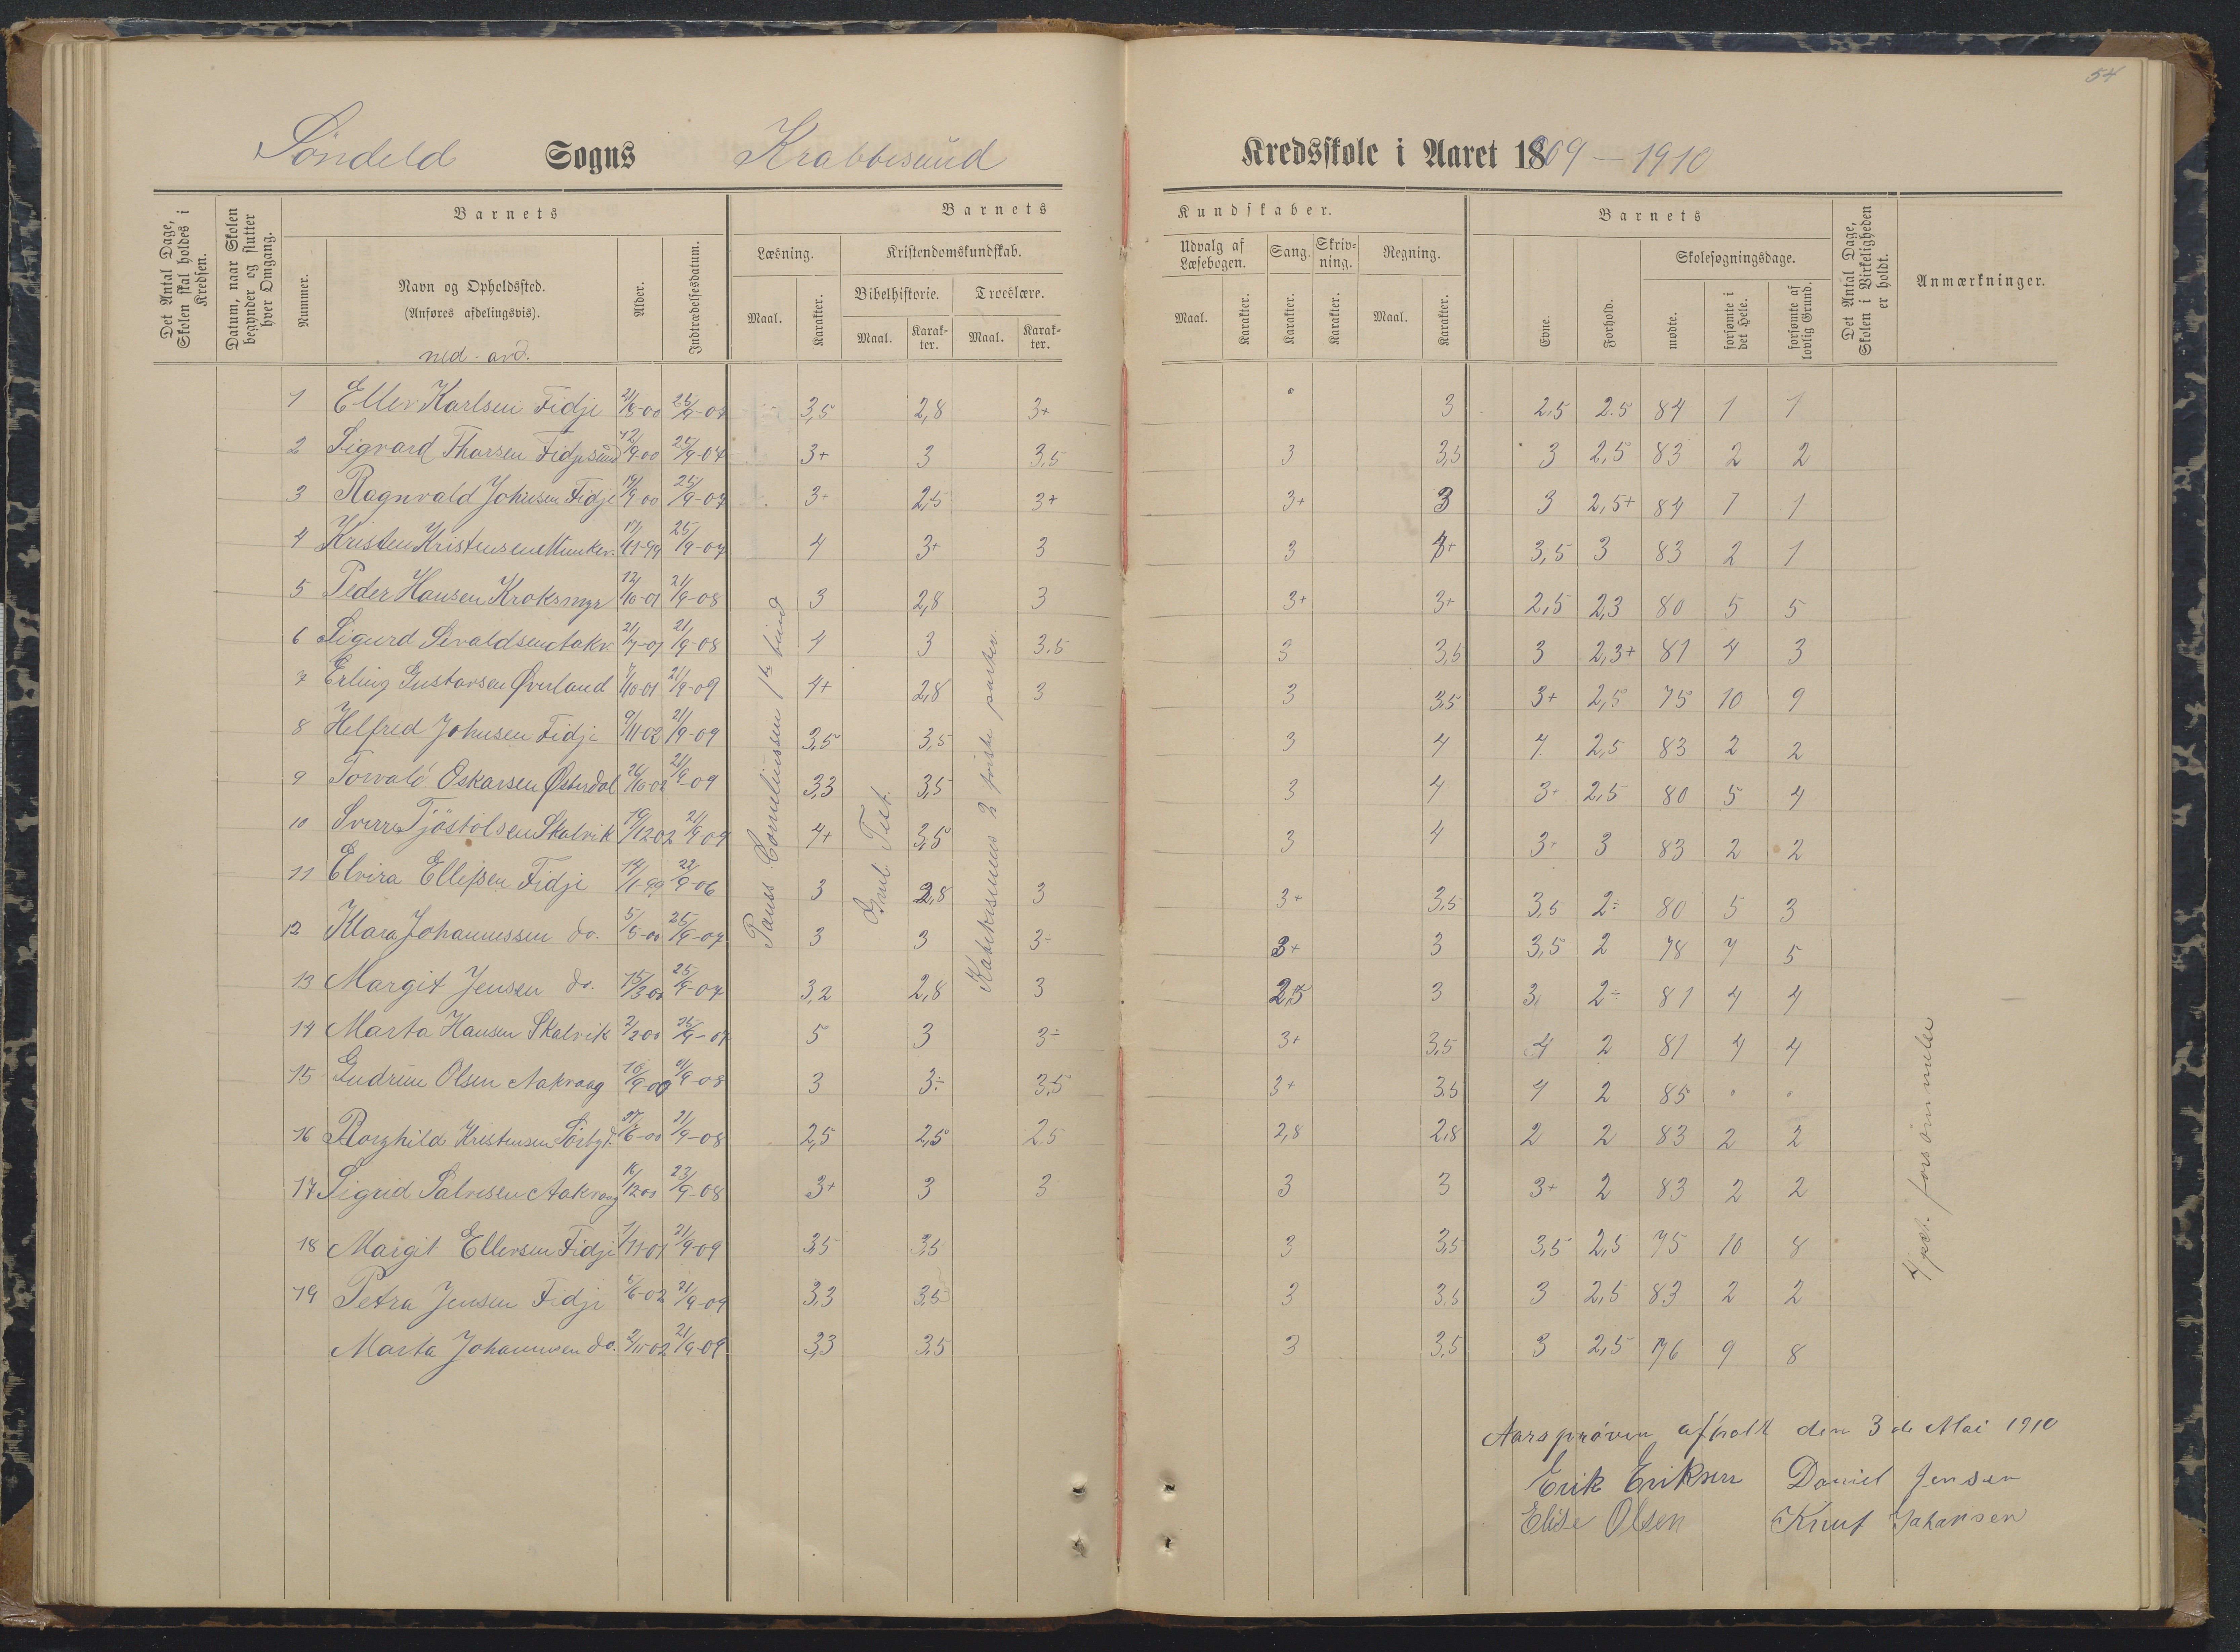 54
Söndeld Sogns Krabbesund Kredsskole i Aaret 1809 – 1910
Det Antal Dage, Skolen skal holdes i Kredsen.
Datum, naar Skolen begynder og slutter hver Omgang.
Barnets
Nummer.
Navn og Opholdssted.
(Anføres afdelingsvis).
ned. avd.
Alder.
Indtrædelsesdatum.
Barnets Kundskaber.
Læsning. Kristendomskundskab. Udvalg af Læsebogen. Sang. Skrivning. Regning.
Bibelhistorie. Troeslære.
Maal. Karakter. Maal. Karakter. Maal. Karakter. Maal. Karakter. Karakter. Karakter. Maal. Karakter.
Barnets
Evne. Forhold. Skolesøgningsdage.
mødte. forsømte i det Hele. forsømte af lovlig Grund.
Det Antal Dage, Skolen i Virkeligheden er holdt.
Anmærkninger.
1 Ellev Karlsen Fidje 21/8-00 25/9-07 3,5 2,8 3+ 3 2,5 2.5 84 1 1
2 Sigvard Thorsen Fidjesund 12/9-00 25/9-07 3+ 3 3,5 3 3,5 3 2,5 83 2 2
3 Ragnvald Johnsen Fidje 19/9-00 25/9-07 3- 2,5 3+ 3+ 3 3 2,5+ 84 1 1
4 Kristen Kristensen 17/11-99 25/9-07 4 3+ 3 3 4+ 3,5 3 83 2 1
5 Peder Hansen Kroksmyr 12/10-01 21/9-08 3 2,8 3 3+ 3+ 2,5 2,3 80 5 5
6 Sigurd Sevaldsen Aakv. 21/7-01 21/9-08 4 3 3.5 3 3,5 3 2,3+ 81 4 3
7 Erling Gustavsen Øverland 21/9-09 4+ 2,8 3 3 3,5 3+ 2,5 75 10 9
8 Helfred Johnsen Fidje 9/11-02 21/9-09 3,5 3,5 3 4 4 2,5 83 2 2
9 Torvald Oskarsen Østerdal 26/10-02 21/9-09 3,3 3,5 3 4 3+ 2,5 80 5 4
10 Sverre Tjöstolsen Skalvik 19/12-02 21/9-09 4+ 3,5 3 4 3+ 3 83 2 2
11 Elvira Ellefsen Fidje 14/1-99 22/9-06 3 2,8 3 3+ 3,5 3,5 2÷ 80 5 3
12 Klara Johannessen do. 5/5-00 25/9-07 3 3 3÷ 3+ 3 3,5 2 78 7 5
13 Margit Jensen do. 15/3-00 25/9-07 3,2 2,8 3 2,5 3 3 2÷ 81 4 4
14 Marta Hansen Skalvik 2/2-00 25/9-07 5 3 3÷ 3+ 3,5 4 2 81 4 4
15 Gudrun Olsen Aakvaag 10/9-00 21/9-08 3 3÷ 3,5 3+ 3.5 4 2 85 " "
16 Borghild Kristensen 27/6-00 21/9-08 2,5 2,5 2,5 2,8 2,8 2 2 83 2 2
17 Sigrid Salvesen Aakvaag 16/12-01 23/9-08 3+ 3 3 3 3 3+ 2 83 2 2
18 Margit Ellevsen Fidje 1/11-01 21/9-09 3,5 3,5 3 3,5 3,5 2,5 75 10 8
19 Petra Jensen Fidje 5/6-02 21/9-09 3,3 3,5 3 3,5 3 2,5 83 2 2
Marta Johannesen do. 2/11-02 21/9-09 3,3 3,5 3 3,5 3 2,5 76 9 8
Pauss Corneliussen 1ste bind
Test.
Katekismens 2 förste parter.
4 pct. forsömmelse
Aarsprøven afholt den 3de Mai 1910
Erik Eriksen Daniel Jensen
Elise Olsen Knut Johansen